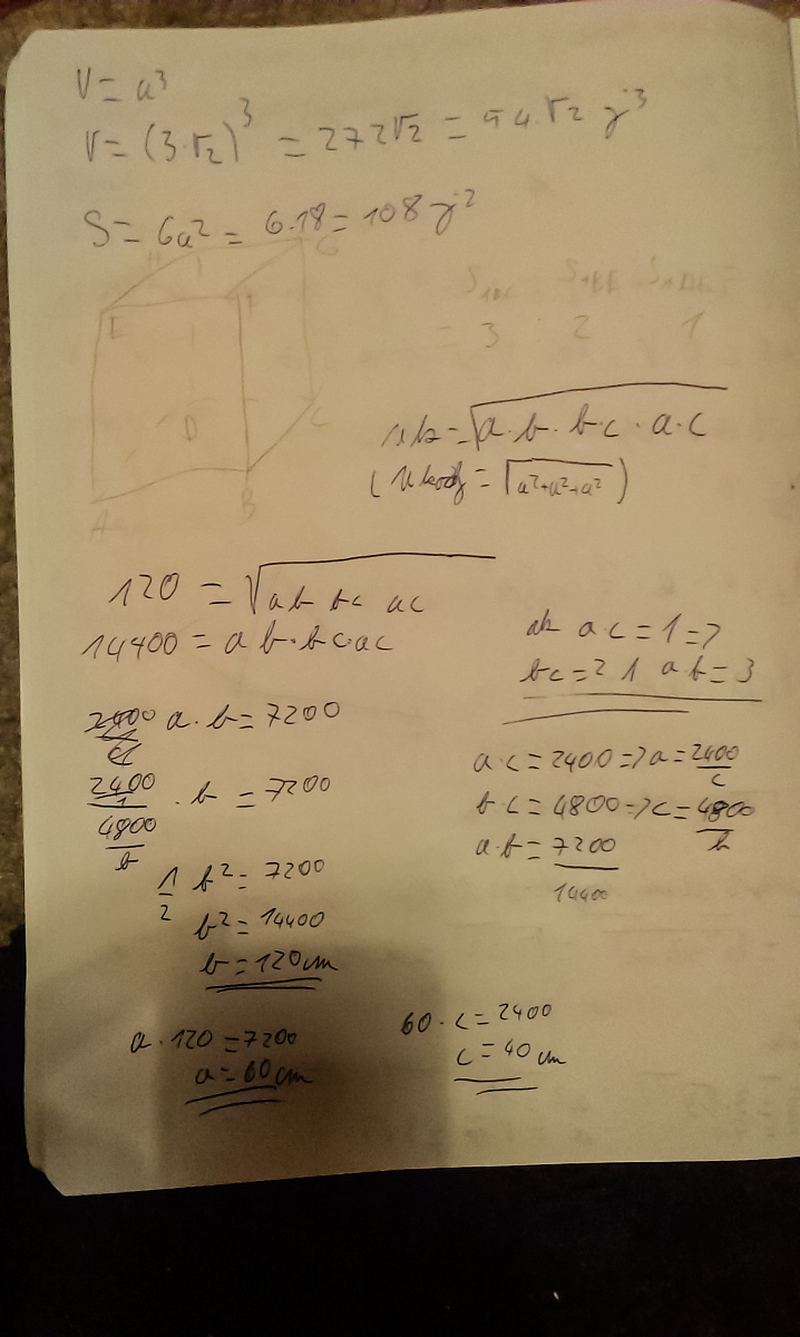 V = a³
V = (3·√2)³ = 27 2√2 = 54·√2 j³
S = 6a² = 6·18 = 108 j²
H G
E F
3 2 1
D C
A B
= √a·b·bc·a·c
= √a²+a²+a²)
120 = √ab bc ac
14400 = ab·bc·ac
ac = 1 =>
bc = 2 1 ab = 3
2400 a·b = 7200
2400 · b = 7200
4800
b
1/2 b² = 7200
b² = 14400
b = 120 cm
ac = 2400 => a = 2400/c
bc = 4800 => c = 4800/b
a·b = 7200
14400
a·120 = 7200
a = 60 cm
60·c = 2400
c = 40 cm